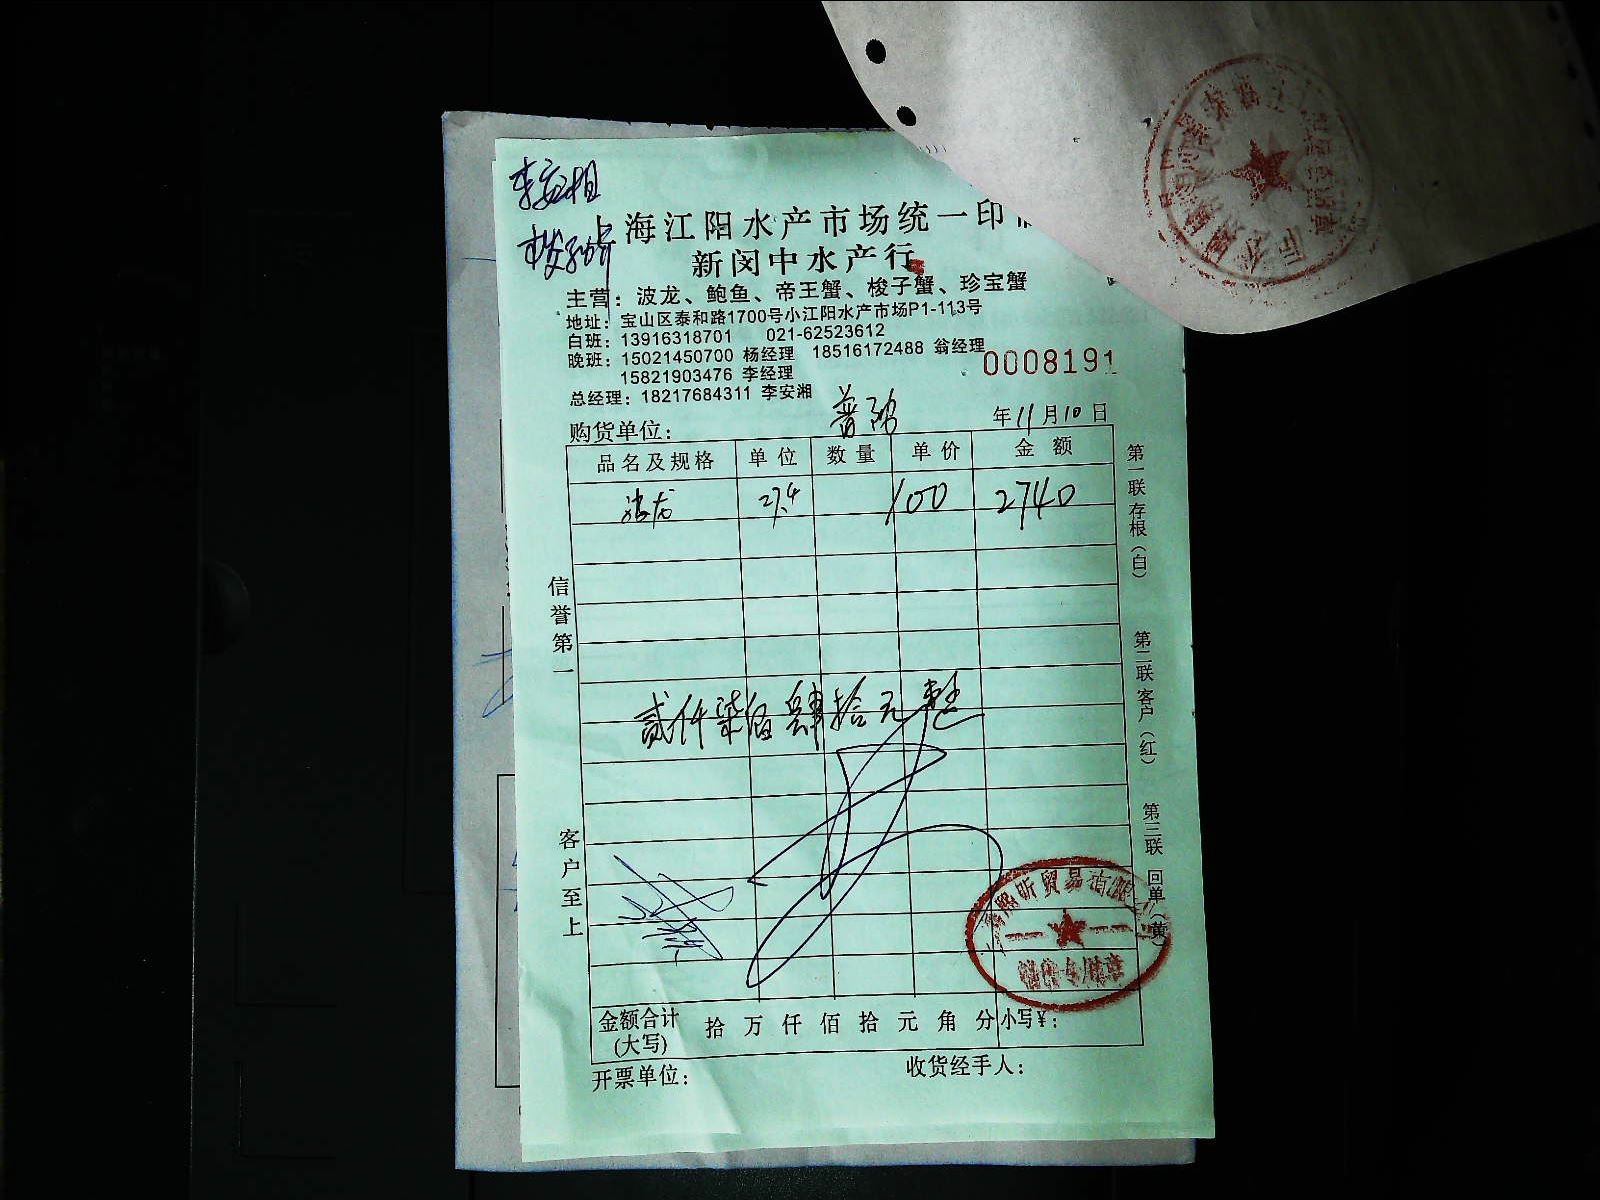 李安相
上海江阳水产市场统一印
新闵中水产行
主营：波龙、鲍鱼、帝王蟹、梭子蟹、珍宝蟹
地址：宝山区泰和路1700号小江阳水产市场P1-113号
白班：13916318701 021-62523612
晚班：15021450700 杨经理 18516172488 翁经理
15821903476 李经理
0008191
总经理：18217684311 李安湘
购货单位： 年11月10日
品名及规格 单位 数量 单价 金额
波龙 27.4 100 2740
贰仟柒佰肆拾元整
金额合计(大写) 拾 万 仟 佰 拾 元 角 分 小写￥：
开票单位： 收货经手人：
信誉第一
客户至上
第一联 存根（白）
第二联 客户（红）
第三联 回单（黄）
昕贸易有限